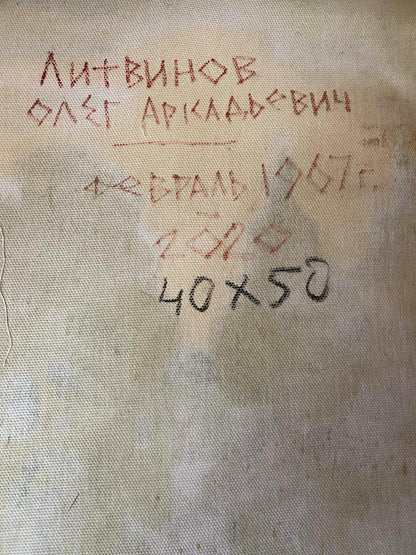 Литвинов
Олег Аркадьевич
февраль 1967 г.
2020
40x50